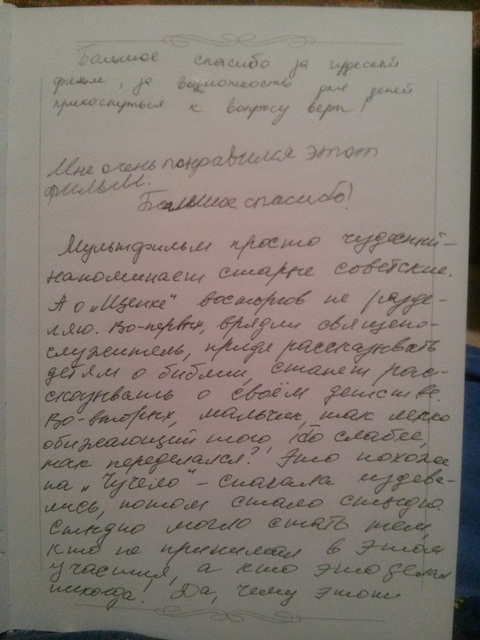 Большое спасибо за чудесный
фильм, за возможность для детей
прикоснуться к вопросу веры!
Мне очень понравился этот
фильм.
Большое спасибо!
Мультфильм просто чудесный –
напоминает старые советские.
А о „Щенке" восторгов не разде-
ляю. Во-первых, врядли священо-
служитель, придя рассказывать
детям о библии, станет рас-
сказывать о своём детстве.
Во-вторых, мальчик, так легко
обижающий того, кто слабее,
так переделался? Это похоже
на „Чучело" – сначала издева-
лись, потом стало стыдно.
Стыдно могло стать тем,
кто не принимал в этом
участия, а кто это делал
никогда! Да, чему этот